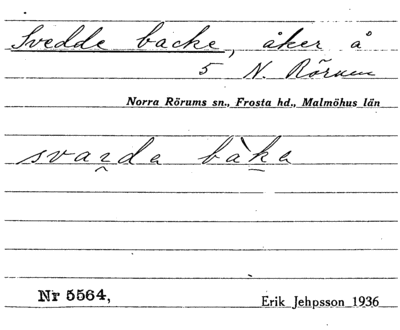 Svedde backe, åker å
5 N. Rörum
Norra Rörums sn., Frosta hd., Malmöhus län
svaꝛ̯da bàk̠a
Nr 5564,
Erik Jehpsson 1936